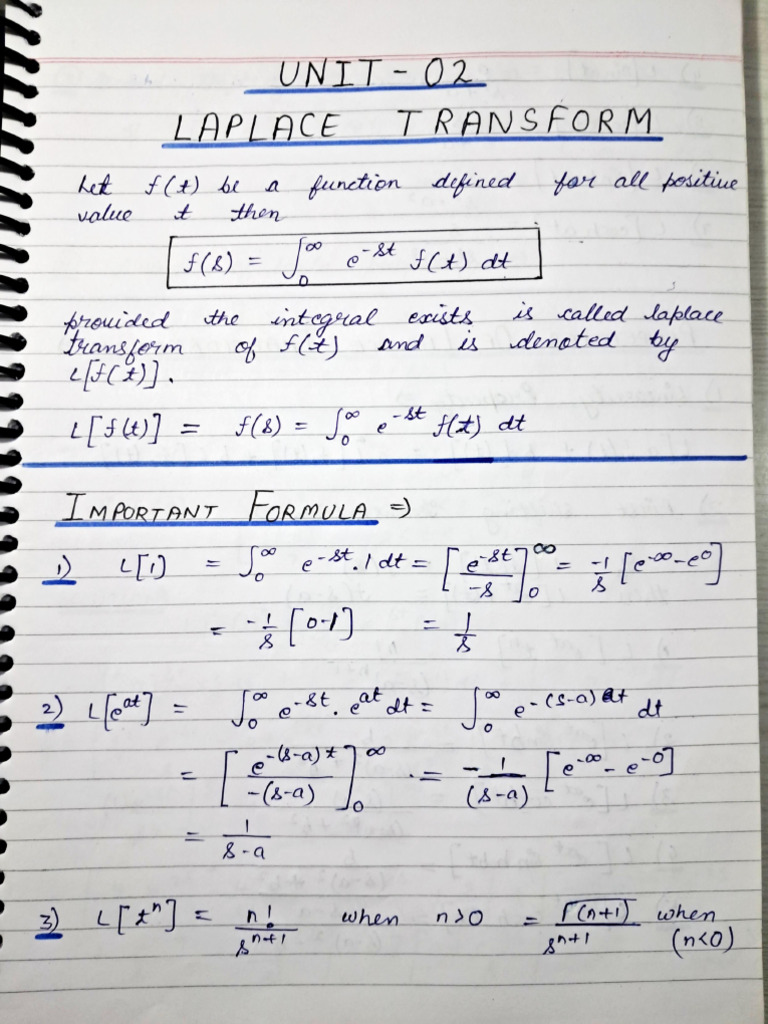 UNIT - 02
LAPLACE TRANSFORM
Let f(t) be a function defined for all positive
value t then
f(s) = ∫₀^∞ e^-st f(t) dt
provided the integral exists is called laplace
transform of f(t) and is denoted by
L[f(t)].
L[f(t)] = f(s) = ∫₀^∞ e^-st f(t) dt
IMPORTANT FORMULA ⇒
1) L[1] = ∫₀^∞ e^-st . 1 dt = [e^-st / -s]₀^∞ = -1/s [e^-∞ - e^0]
= -1/s [0-1] = 1/s
2) L[e^at] = ∫₀^∞ e^-st . e^at dt = ∫₀^∞ e^-(s-a)t dt
= [e^-(s-a)t / -(s-a)]₀^∞ . = -1/(s-a) [e^-∞ - e^-0]
= 1/s-a
3) L[t^n] = n!/s^n+1 when n>0 = Γ(n+1)/s^n+1 when
(n<0)